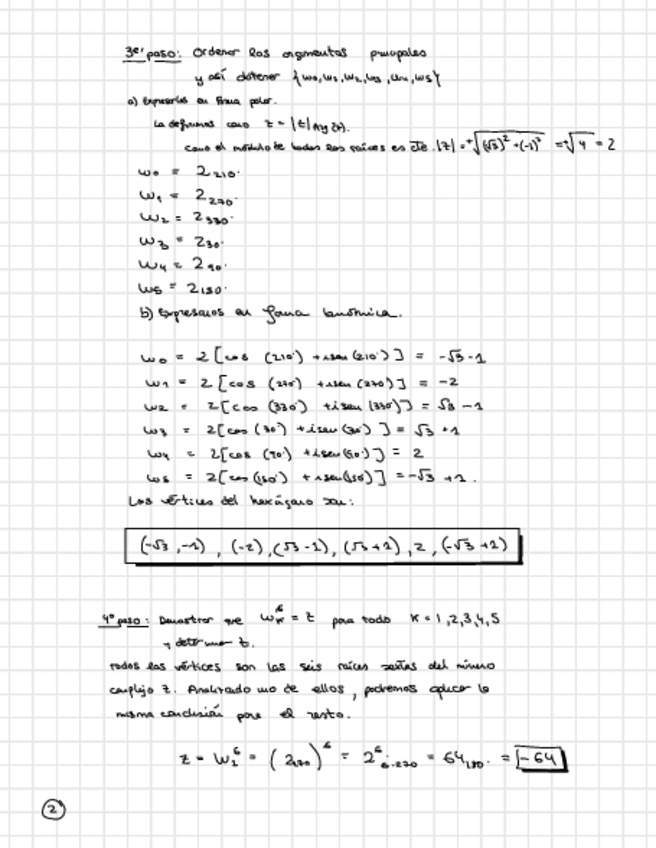 3er paso: Ordenar los argumentos principales
y así obtener {w0, w1, w2, w3, w4, w5}
a) Expresarlas en forma polar.
La definimos como z = |z| Arg(z).
como el módulo de todas las raíces es cte. |z| = +√((√3)² + (-1)²) = +√4 = 2
w0 = 2 210°
w1 = 2 270°
w2 = 2 330°
w3 = 2 30°
w4 = 2 90°
w5 = 2 150°
b) Expresarlos en forma binómica.
w0 = 2 [cos (210°) + i sen (210°)] = -√3 - 1
w1 = 2 [cos (270°) + i sen (270)] = -2
w2 = 2[cos (330°) + i sen (330°)] = √3 - 1
w3 = 2[cos (30°) + i sen (30°)] = √3 + 1
w4 = 2[cos (90°) + i sen (90°)] = 2
w5 = 2[cos (150°) + i sen (150°)] = -√3 + 1.
Los vértices del hexágono son:
(-√3, -1), (-2), (√3 - 1), (√3 + 1), 2, (-√3 + 1)
4º paso: Demostrar que wK⁶ = z para todo K = 1, 2, 3, 4, 5
y determinar z.
todos los vértices son las seis raíces sextas del número
complejo z. Analizando uno de ellos, podremos aplicar la
misma conclusión para el resto.
z = w1⁶ = (2 270)⁶ = 2⁶ 6·270 = 64 180° = -64
2